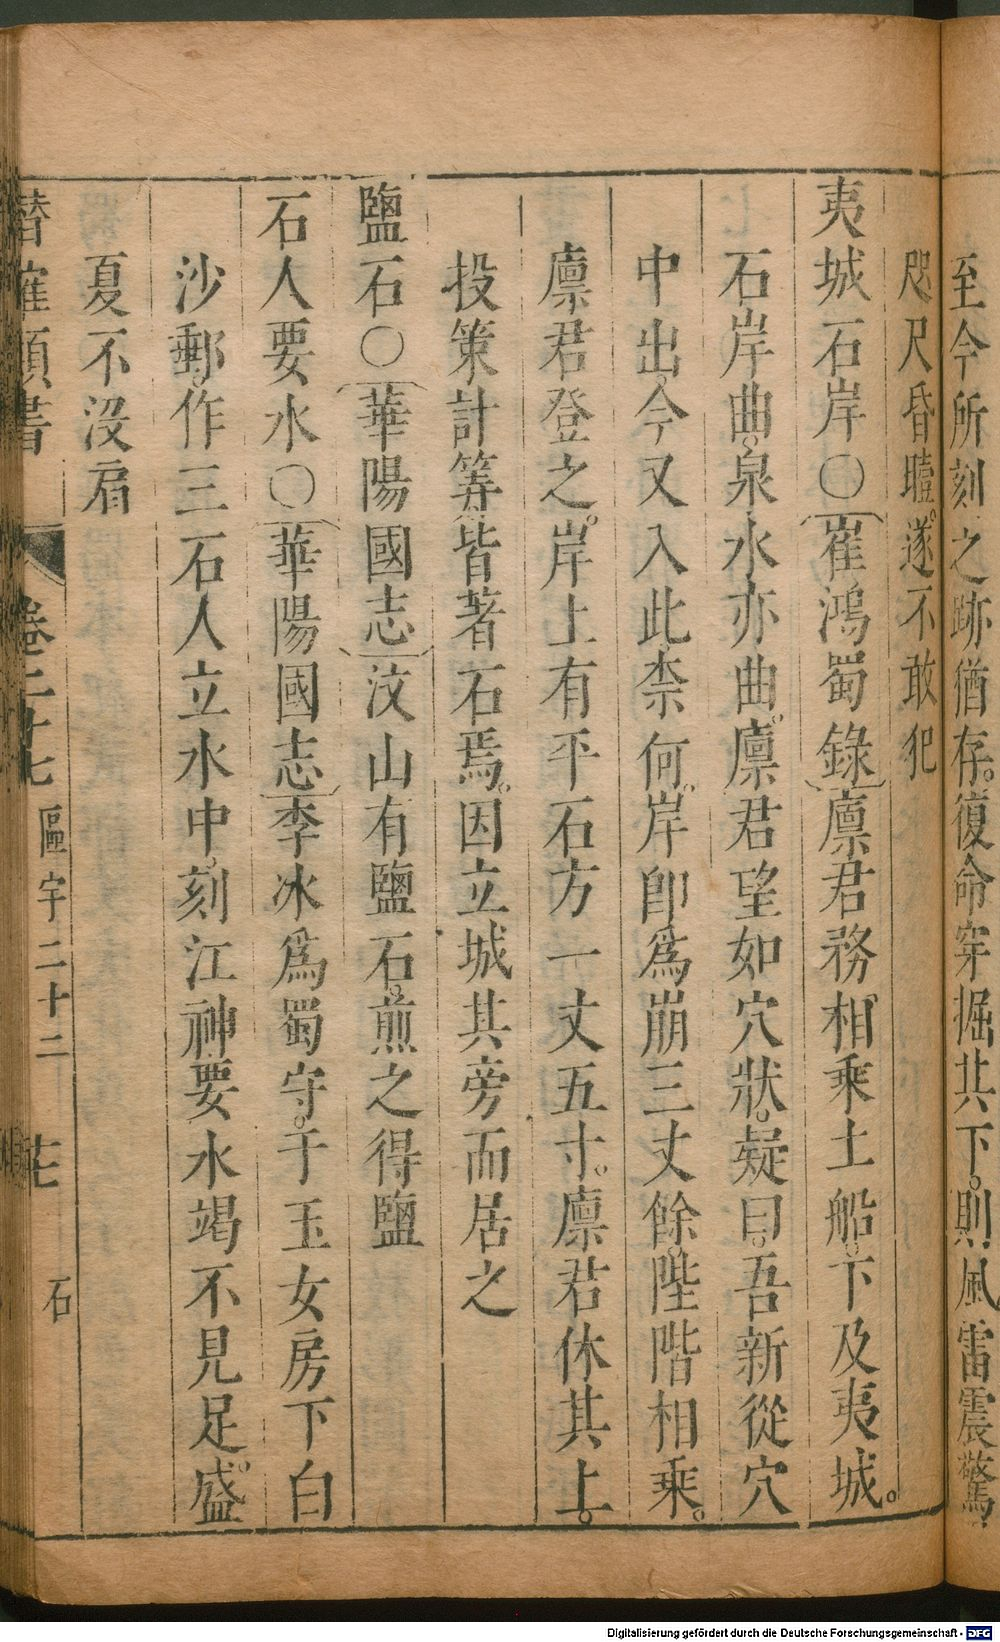 至今所刻之跡猶存。復命穿掘其下。則風雷震驚。
咫尺昏曀。遂不敢犯
夷城石岸〇崔鴻蜀錄廩君務相乘土船。下及夷城。
石岸曲。泉水亦曲。廩君望如穴狀。疑曰。吾新從穴
中出。今又入此柰何。岸即爲崩三丈餘。陛階相乘。
廩君登之。岸上有平石方一丈五寸。廩君休其上。
投策計筭。皆著石焉。因立城其旁而居之
鹽石〇華陽國志汶山有鹽石。煎之得鹽
石人要水〇華陽國志李冰爲蜀守。于玉女房下白
沙郵。作三石人立水中。刻江神要水竭不見足。盛
夏不沒肩
潛確類書 卷二十七 區宇二十二 石
Digitalisierung gefördert durch die Deutsche Forschungsgemeinschaft - DFG